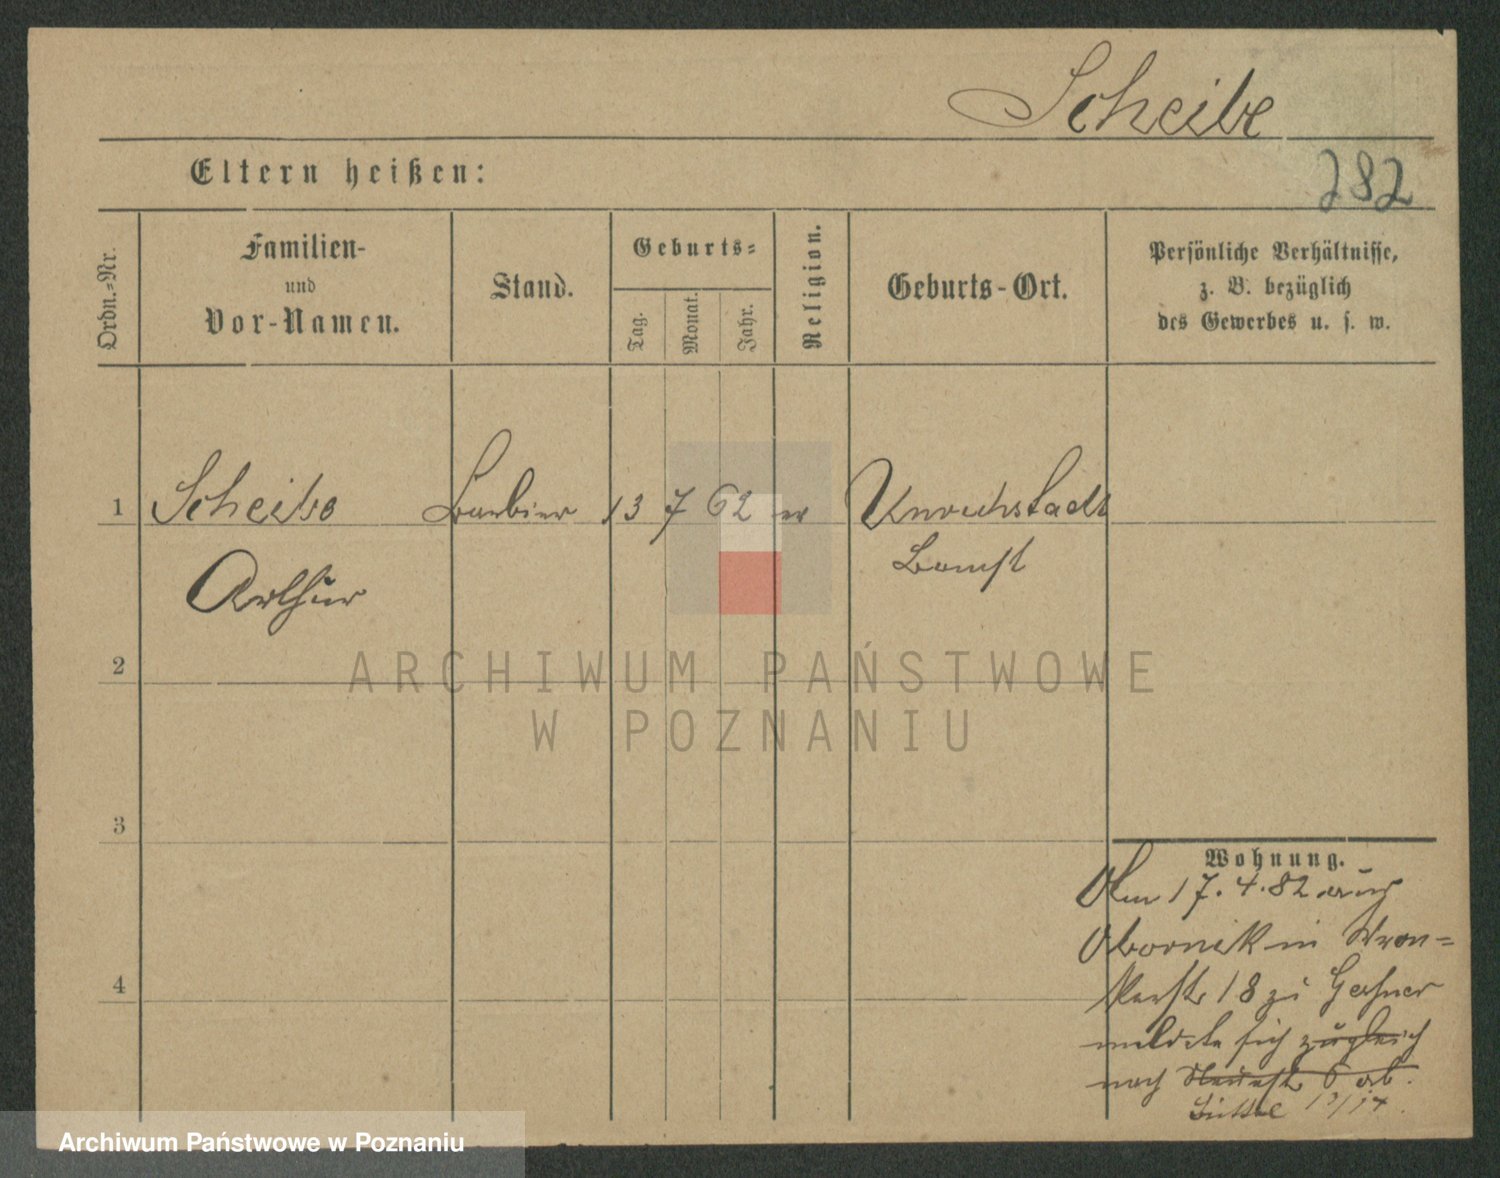 Scheibe
Eltern heißen:
282
Ordn.-Nr.
Familien-
und
Vor-Namen.
Stand.
Geburts-
Tag.
Monat.
Jahr.
Religion.
Geburts-Ort.
Persönliche Verhältnisse,
z. B. bezüglich
des Gewerbes u. s. w.
1 Scheibe Barbier 13 7 62 ev Unruhstadt
Arthur Bomst
2
3
4
Wohnung.
Am 17. 4. 82 aus
Obornik in Wron=
kerstr 18 zu
meldete sich zugleich
nach 6 ab.
ARCHIWUM PAŃSTWOWE
W POZNANIU
Archiwum Państwowe w Poznaniu